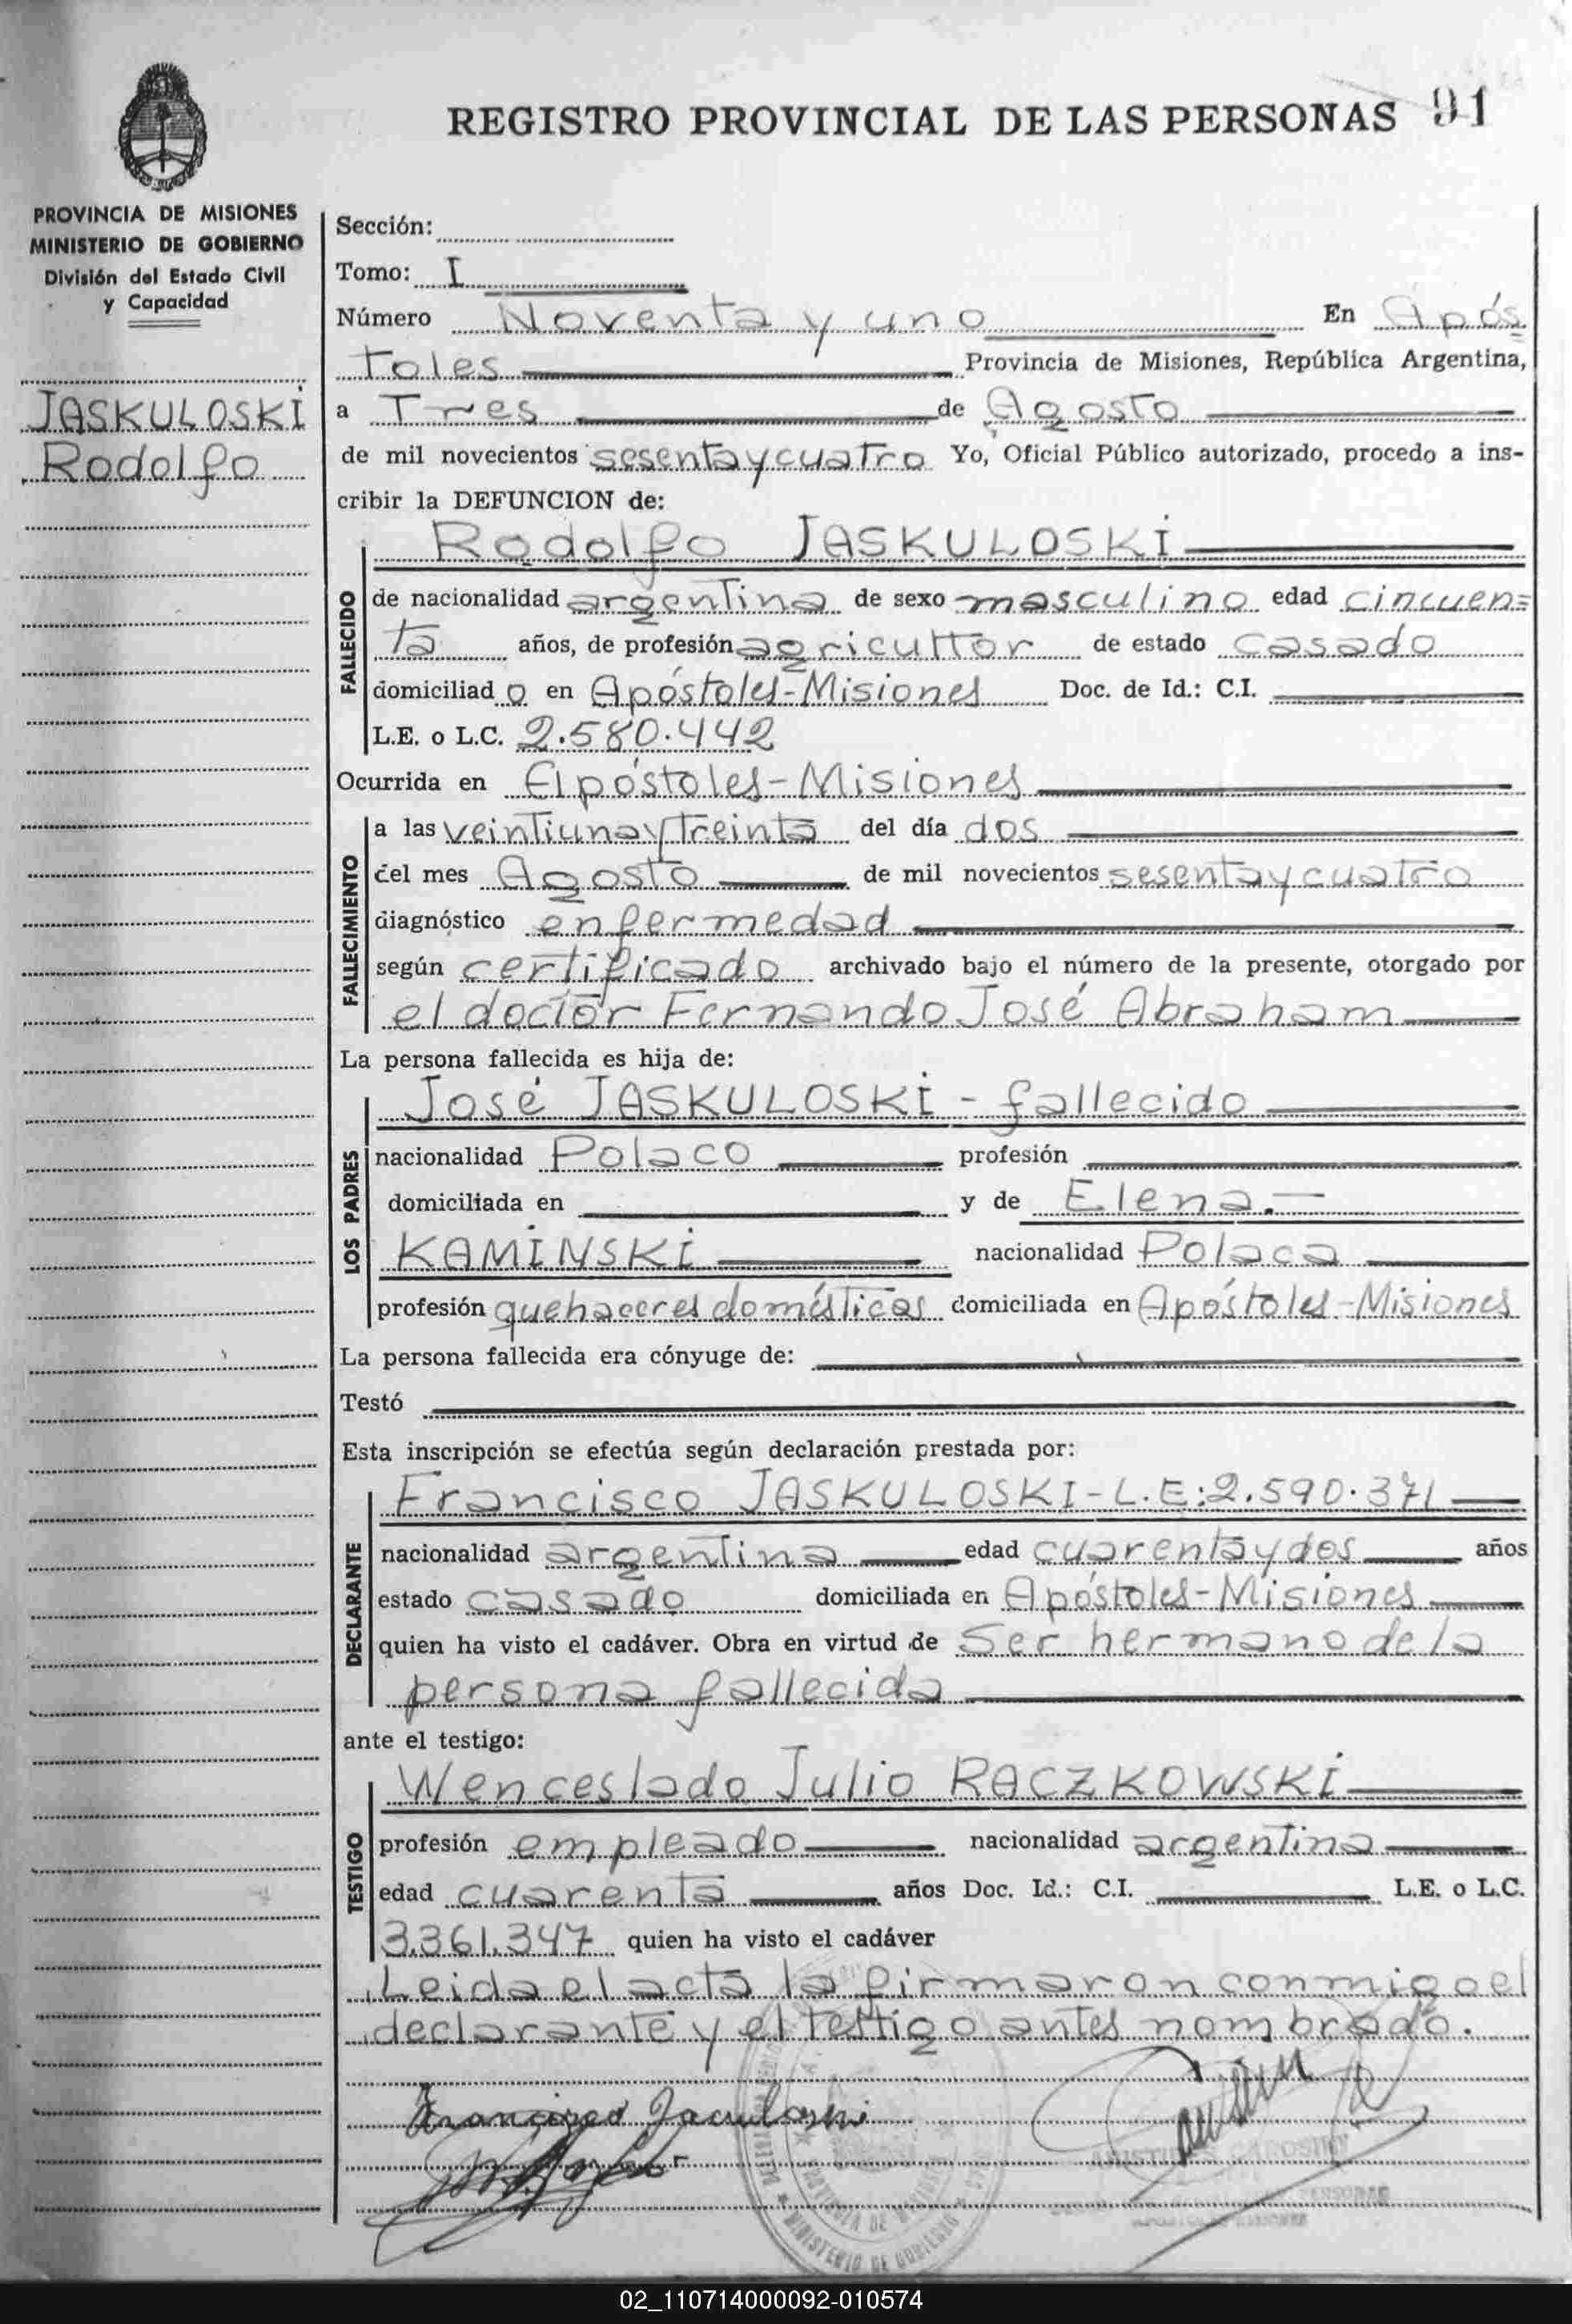 REGISTRO PROVINCIAL DE LAS PERSONAS 91
PROVINCIA DE MISIONES
MINISTERIO DE GOBIERNO
División del Estado Civil
y Capacidad
JASKULOSKI
Rodolfo
Sección:
Tomo: I
Número Noventa y uno En Após
toles Provincia de Misiones, República Argentina,
a Tres de Agosto
de mil novecientos sesenta y cuatro Yo, Oficial Público autorizado, procedo a ins-
cribir la DEFUNCION de:
Rodolfo JASKULOSKI
FALLECIDO
de nacionalidad argentina de sexo masculino edad cincuen=
ta años, de profesión agricultor de estado casado
domiciliad o en Apóstoles-Misiones Doc. de Id.: C.I.
L.E. o L.C. 2.580.442
Ocurrida en Apóstoles-Misiones
FALLECIMIENTO
a las veintiuna y treinta del día dos
del mes Agosto de mil novecientos sesenta y cuatro
diagnóstico enfermedad
según certificado archivado bajo el número de la presente, otorgado por
el doctor Fernando José Abraham
La persona fallecida es hija de:
José JASKULOSKI - fallecido
LOS PADRES
nacionalidad Polaco profesión
domiciliada en y de Elena.-
KAMINSKI nacionalidad Polaca
profesión quehaceres domésticos domiciliada en Apóstoles-Misiones
La persona fallecida era cónyuge de:
Testó
Esta inscripción se efectúa según declaración prestada por:
Francisco JASKULOSKI-L.E:2.590.371
DECLARANTE
nacionalidad argentina edad cuarenta y dos años
estado casado domiciliada en Apóstoles-Misiones
quien ha visto el cadáver. Obra en virtud de Ser hermano de la
persona fallecida
ante el testigo:
Wenceslado Julio RACZKOWSKI
TESTIGO
profesión empleado nacionalidad argentina
edad cuarenta años Doc. Id.: C.I. L.E. o L.C.
3.361.347 quien ha visto el cadáver
Leida el acta la firmaron conmigo el
declarante y el testigo antes nombrado.
Francisco Jaculoski
MINISTERIO DE GOBIERNO
02_110714000092-010574